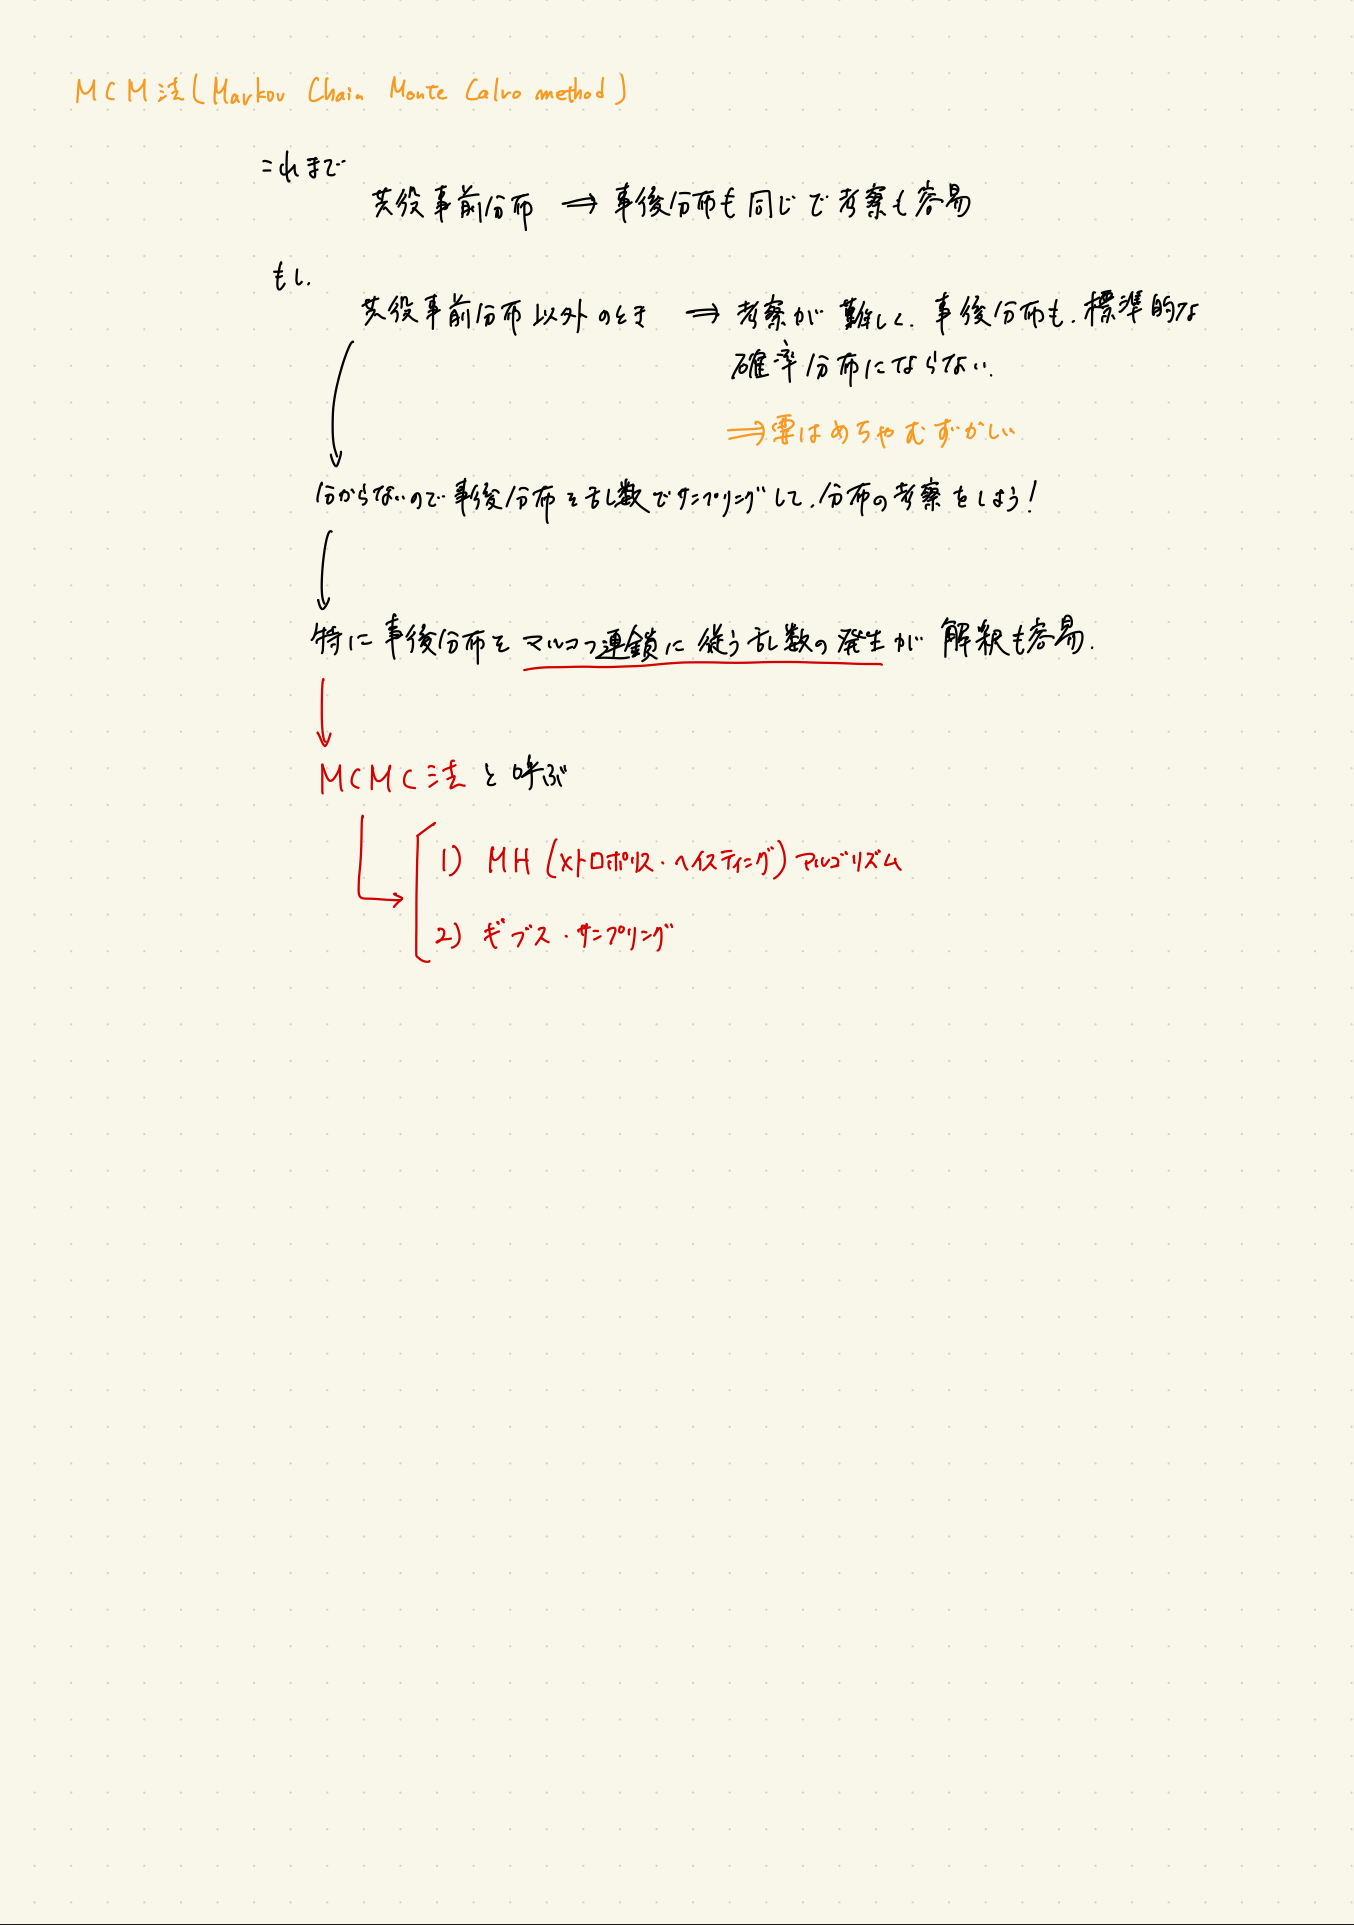 MCM法(Markov Chain Monte Calro method)
これまで
共役事前分布 ⇒ 事後分布も同じで考察も容易
もし.
共役事前分布以外のとき ⇒ 考察が難しく.事後分布も.標準的な
確率分布にならない.
⇒要はめちゃむずかしい
分からないので事後分布を乱数でサンプリングして.分布の考察をしよう!
特に事後分布をマルコフ連鎖に従う乱数の発生が解釈も容易.
MCMC法と呼ぶ
1) MH(メトロポリス・ヘイスティング)アルゴリズム
2) ギブス・サンプリング